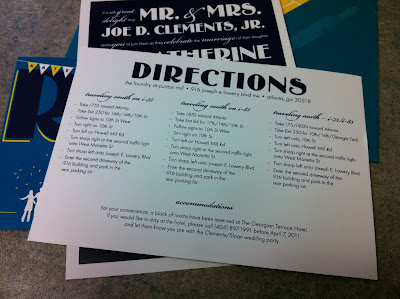 great
delight that
MR. & MRS.
JOE D. CLEMENTS, JR.
you to join them as they celebrate the marriage of their daughter
THERINE
DIRECTIONS
the foundry at puritan mill • 916 joseph e lowery blvd nw • atlanta, ga 30318
traveling south on i-85
- Take I-75S toward Atlanta
- Take Exit 250 for 10th/14th/16th St
- Follow signs to 10th St West
- Turn right on 10th St
- Turn left on Howell Mill Rd
- Turn sharp right at the second traffic light onto West Marietta St
- Turn sharp left onto Joseph E. Lowery Blvd
- Enter the second driveway of the 916 building and park in the rear parking lot
traveling south on
- Take I-85S toward Atlanta
- Turn right onto 10th St
- Turn left on Howell Mill Rd
- Turn sharp right at the second traffic light onto West Marietta St
- Turn sharp left onto Joseph E. Lowery Blvd
- Enter the second driveway of the 916 building and park in the rear parking lot
traveling north – i-75/i-85
- Take I-75/I-85N toward Atlanta
- Take Exit 250 for 10th/14th/Georgia Tech
- Turn left onto 10th St
- Turn left on Howell Mill Rd
- Turn sharp right at the second traffic light onto West Marietta St
- Turn sharp left onto Joseph E. Lowery Blvd
- Enter the second driveway of the 916 building and park in the rear parking lot
accommodations
For your convenience, a block of rooms have been reserved at The Georgian Terrace Hotel.
If you would like to stay at the hotel, please call (404) 897-1991 before April 7, 2011
and let them know you are with the Clements/Sloan wedding party.